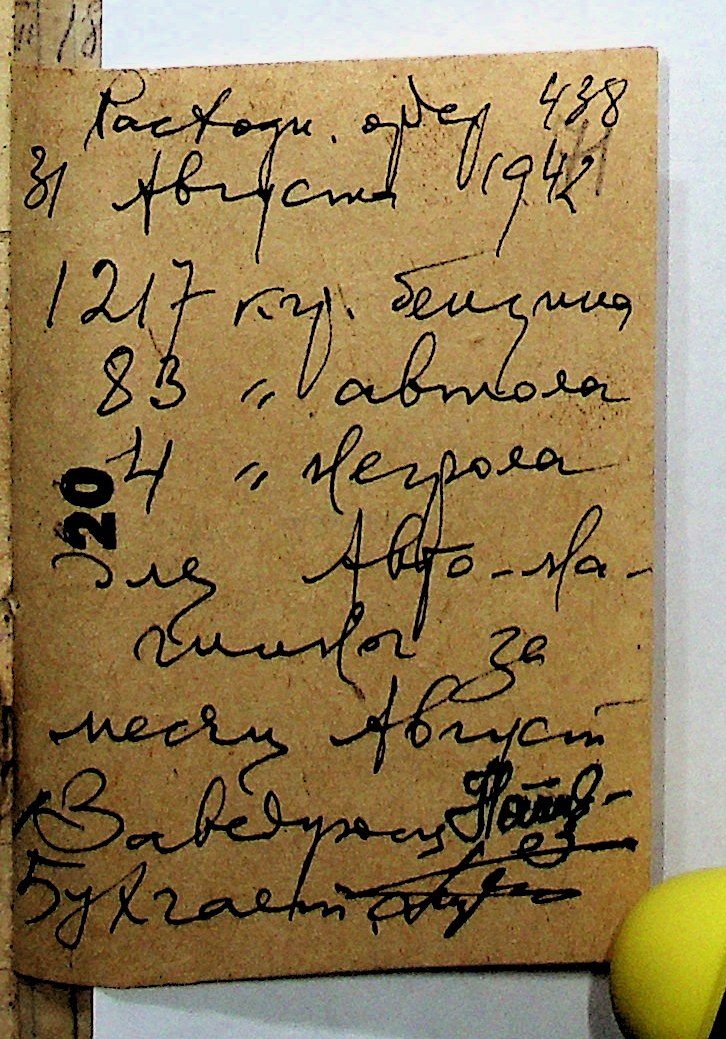 Расходн. ордер 438
31 Августа 1942
1217 кгр. бензина
83 " автола
4 " негрола
20
для Авто-ма-
шины за
месяц Август
Заведующ
Бухгалт.